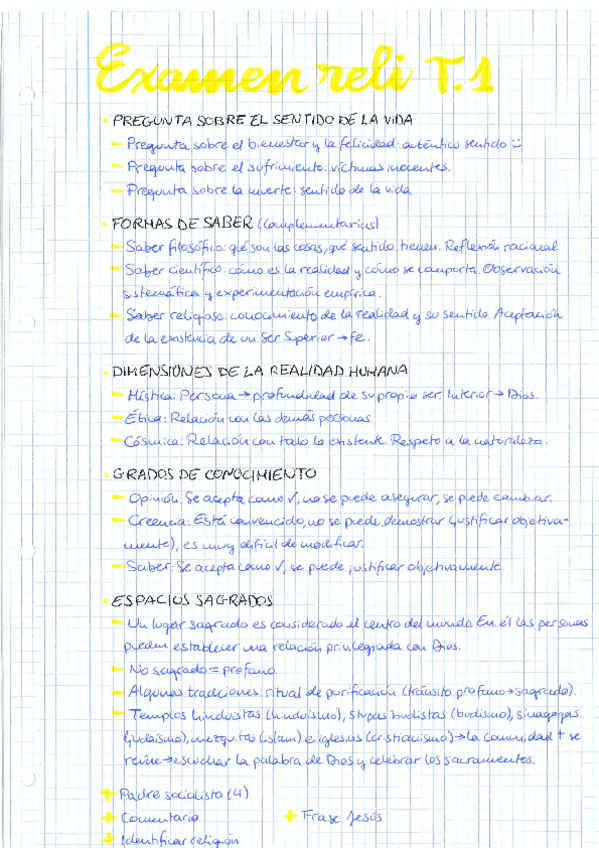 Examen reli T.1
PREGUNTA SOBRE EL SENTIDO DE LA VIDA
- Pregunta sobre el bienestar y la felicidad: auténtico sentido :)
- Pregunta sobre el sufrimiento: víctimas inocentes.
- Pregunta sobre la muerte: sentido de la vida
FORMAS DE SABER (complementarias)
- Saber filosófico: qué son las cosas, qué sentido tienen. Reflexión racional
- Saber científico: cómo es la realidad y cómo se comporta. Observación
sistemática y experimentación empírica.
- Saber religioso: conocimiento de la realidad y su sentido. Aceptación
de la existencia de un Ser Superior → fe.
DIMENSIONES DE LA REALIDAD HUMANA
- Mística: Persona → profundidad de su propio ser. Interior → Dios.
- Ética: Relación con las demás personas
- Cósmica: Relación con todo lo existente. Respeto a la naturaleza.
GRADOS DE CONOCIMIENTO
- Opinión: Se acepta como ✓, no se puede asegurar, se puede cambiar.
- Creencia: Está convencido, no se puede demostrar (justificar objetiva-
mente), es muy difícil de modificar.
- Saber: Se acepta como ✓, se puede justificar objetivamente.
ESPACIOS SAGRADOS
- Un lugar sagrado es considerado el centro del mundo. En él las personas
pueden establecer una relación privilegiada con Dios.
- No sagrado = profano.
- Algunas tradiciones: ritual de purificación (tránsito profano → sagrado).
- Templos hinduistas (hinduismo), stupas budistas (budismo), sinagogas
(judaísmo), mezquitas (islam) e iglesias (cristianismo) → la comunidad † se
reúne → escuchar la palabra de Dios y celebrar los sacramentos.
+ Padre socialista (4)
+ Comentario + Frase Jesús
+ Identificar religión